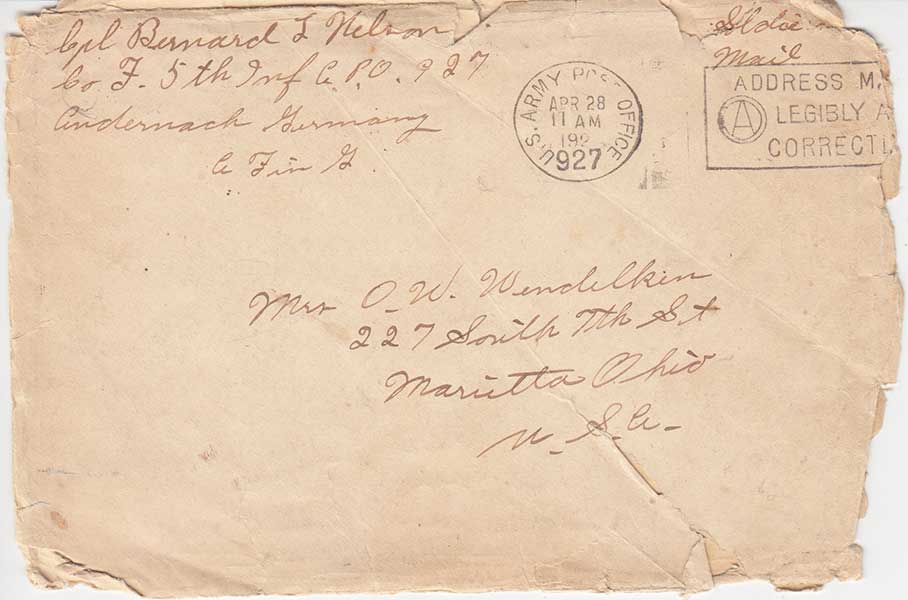 Cpl Bernard L Nelson
Co F. 5th Inf A.P.O. 927
Andernach Germany
A F in G.
Soldie
Mail
U.S. ARMY POST OFFICE
APR 28
11 AM
192
927
ADDRESS MA
A LEGIBLY A
CORRECTL
Mrs O. W. Wendelken
227 South 7th St
Marietta Ohio
U. S. A.